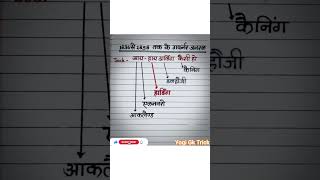 1836 से 1858 तक के गवर्नर जनरल
Trick - आय - हाय डार्लिंग कैसी हो
कैनिंग
डलहौजी
हार्डिंग
एलनबरो
आकलैण्ड
Yogi Gk Trick
कैनिंग
आकलैण्ड